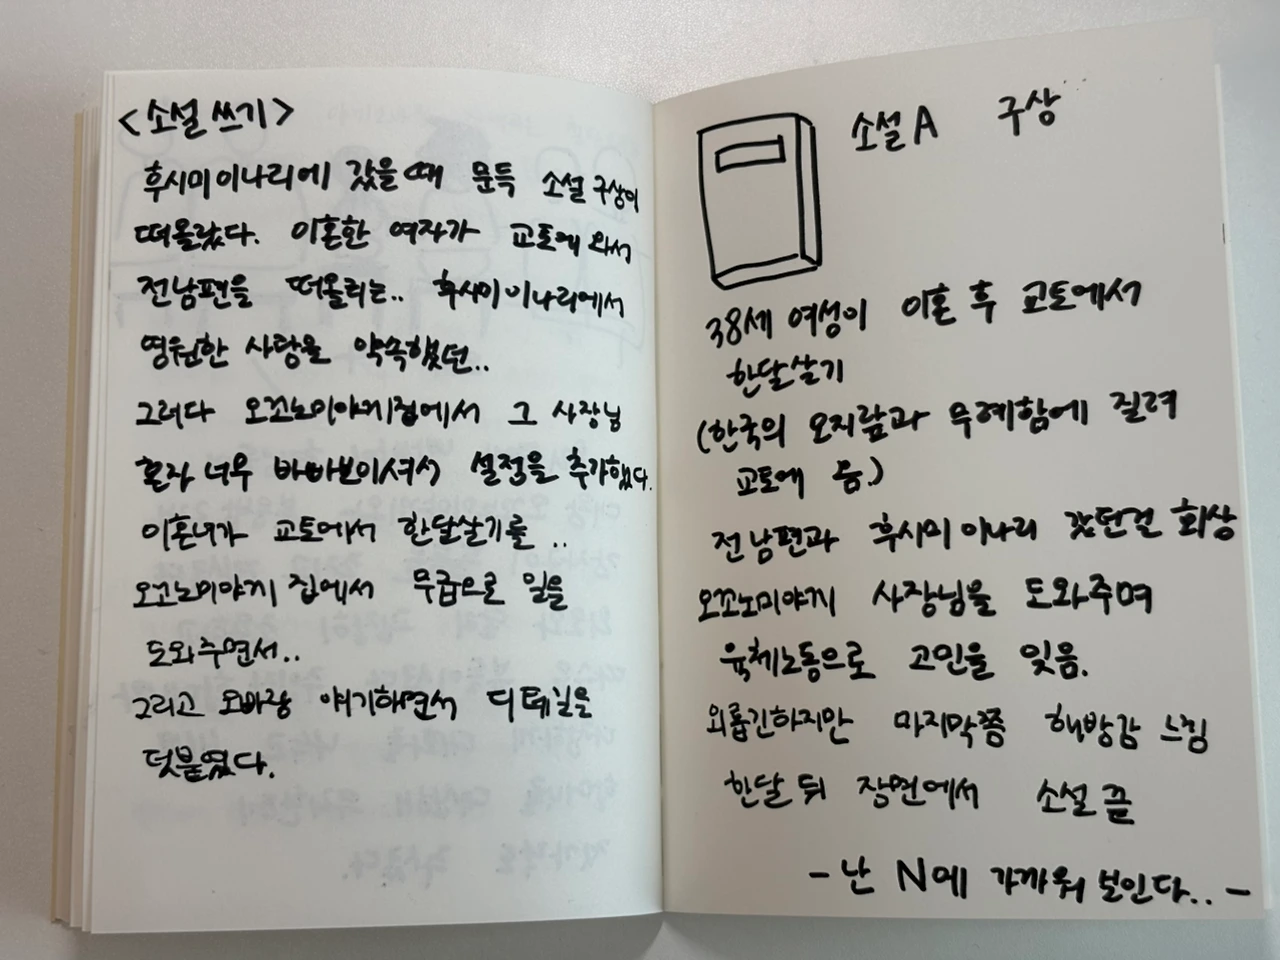 <소설 쓰기>
후시미 이나리에 갔을 때 문득 소설 구상이
떠올랐다. 이혼한 여자가 교토에 와서
전남편을 떠올리는.. 후시미 이나리에서
영원한 사랑을 약속했던..
그러다 오꼬노미야끼집에서 그 사장님
혼자 너무 바빠보이셔서 설정을 추가했다.
이혼녀가 교토에서 한달살기를 ..
오꼬노미야끼 집에서 무급으로 일을
도와주면서..
그리고 오빠랑 얘기하면서 디테일을
덧붙였다.
소설A 구상
38세 여성이 이혼 후 교토에서
한달살기
(한국의 오지랖과 무례함에 질려
교토에 옴.)
전남편과 후시미 이나리 갔던걸 회상
오꼬노미야끼 사장님을 도와주며
육체노동으로 고민을 잊음.
외롭긴하지만 마지막쯤 해방감 느낌
한달 뒤 장면에서 소설 끝
- 난 N에 가까워 보인다.. -